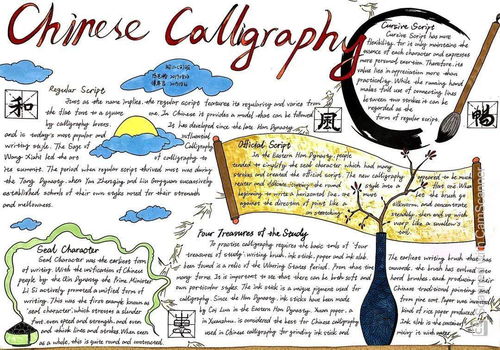 Chinese Calligraphy
Regular Script
Just as the name implies, the regular script features its regularity and varies from
the flat tone to a square one. In Chinese is provides a model that can be followed
by calligraphy lovers. It has developed since the late Han Dynasty
and is today's most popular and
writing style. The Sage of Calligraphy
Wang Xizhi led the art of calligraphy to
its summit. The period when regular script thrived most was during
the Tang Dynasty, when Yan Zhenqing and Liu Gongquan successively
established schools of their own styles noted for their strength
and mellowness.
和
Cursive Script
Cursive Script has more
flexibility, for it only maintains the
essence of each character and expresses
more personal exertion. Therefore, its
value lies in appreciation more than
practicality. While the running hand
makes full use of connecting lines
between two strokes is can be
regarded as the
form of regular script.
風
暢
Official Script
In the Eastern Han Dynasty, people
tended to simplify the seal character which had many
strokes and created the official script. The new calligraphy
style into a
one. When
the brush go
against the direction of pixel like a
silkworm, and concentrate
steadily, then end up with
warp like a swallow's
tail.
Seal Character
Seal Character was the earliest form
of writing. With the unification of Chinese
people by the Qin Dynasty, the Prime Minister
Li Si actively promoted a unified form of
writing. This was the first example known as
"seal character", which stresses a slender
font, even speed and strength, and even
and think lines and strokes. When seen
as a whole, this is quite round and contoured.
裏
Four Treasures of the Study
To practise calligraphy requires the basic tools of "four
treasures of study": writing brush, ink stick, paper and ink slab.
been found in a relic of the Warring States Period. From that time
many forms. It is important to see that there can be both soft and
own particular styles. The Ink stick is a unique pigment used for
calligraphy. Since the Han Dynasty, ink sticks have been made
by Cai Lun in the Eastern Han Dynasty. Xuan paper, a
in Xuanzhou, is considered the best for Chinese calligraphy
used in Chinese calligraphy for grinding ink stick and
The earliest writing brush that has
onwards, the brush has evolved into
hard brushes, each producing their
Chinese traditional painting and
from pine soot. Paper was invented
kind of rice paper produced
Ink slab is the container
mixing it with water.
CamScanner